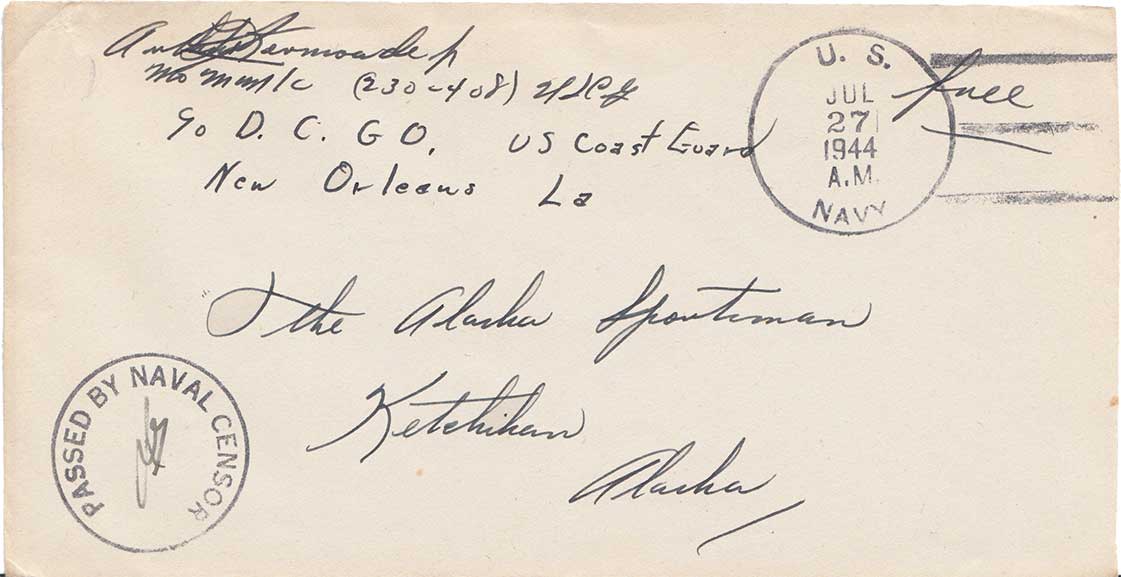 (230-408) USCG
c/o D. C. G O, US Coast Guard
New Orleans La
U. S.
JUL
27
1944
A.M.
NAVY
free
The Alaska Sportsman
Ketchikan
Alaska
PASSED BY NAVAL CENSOR